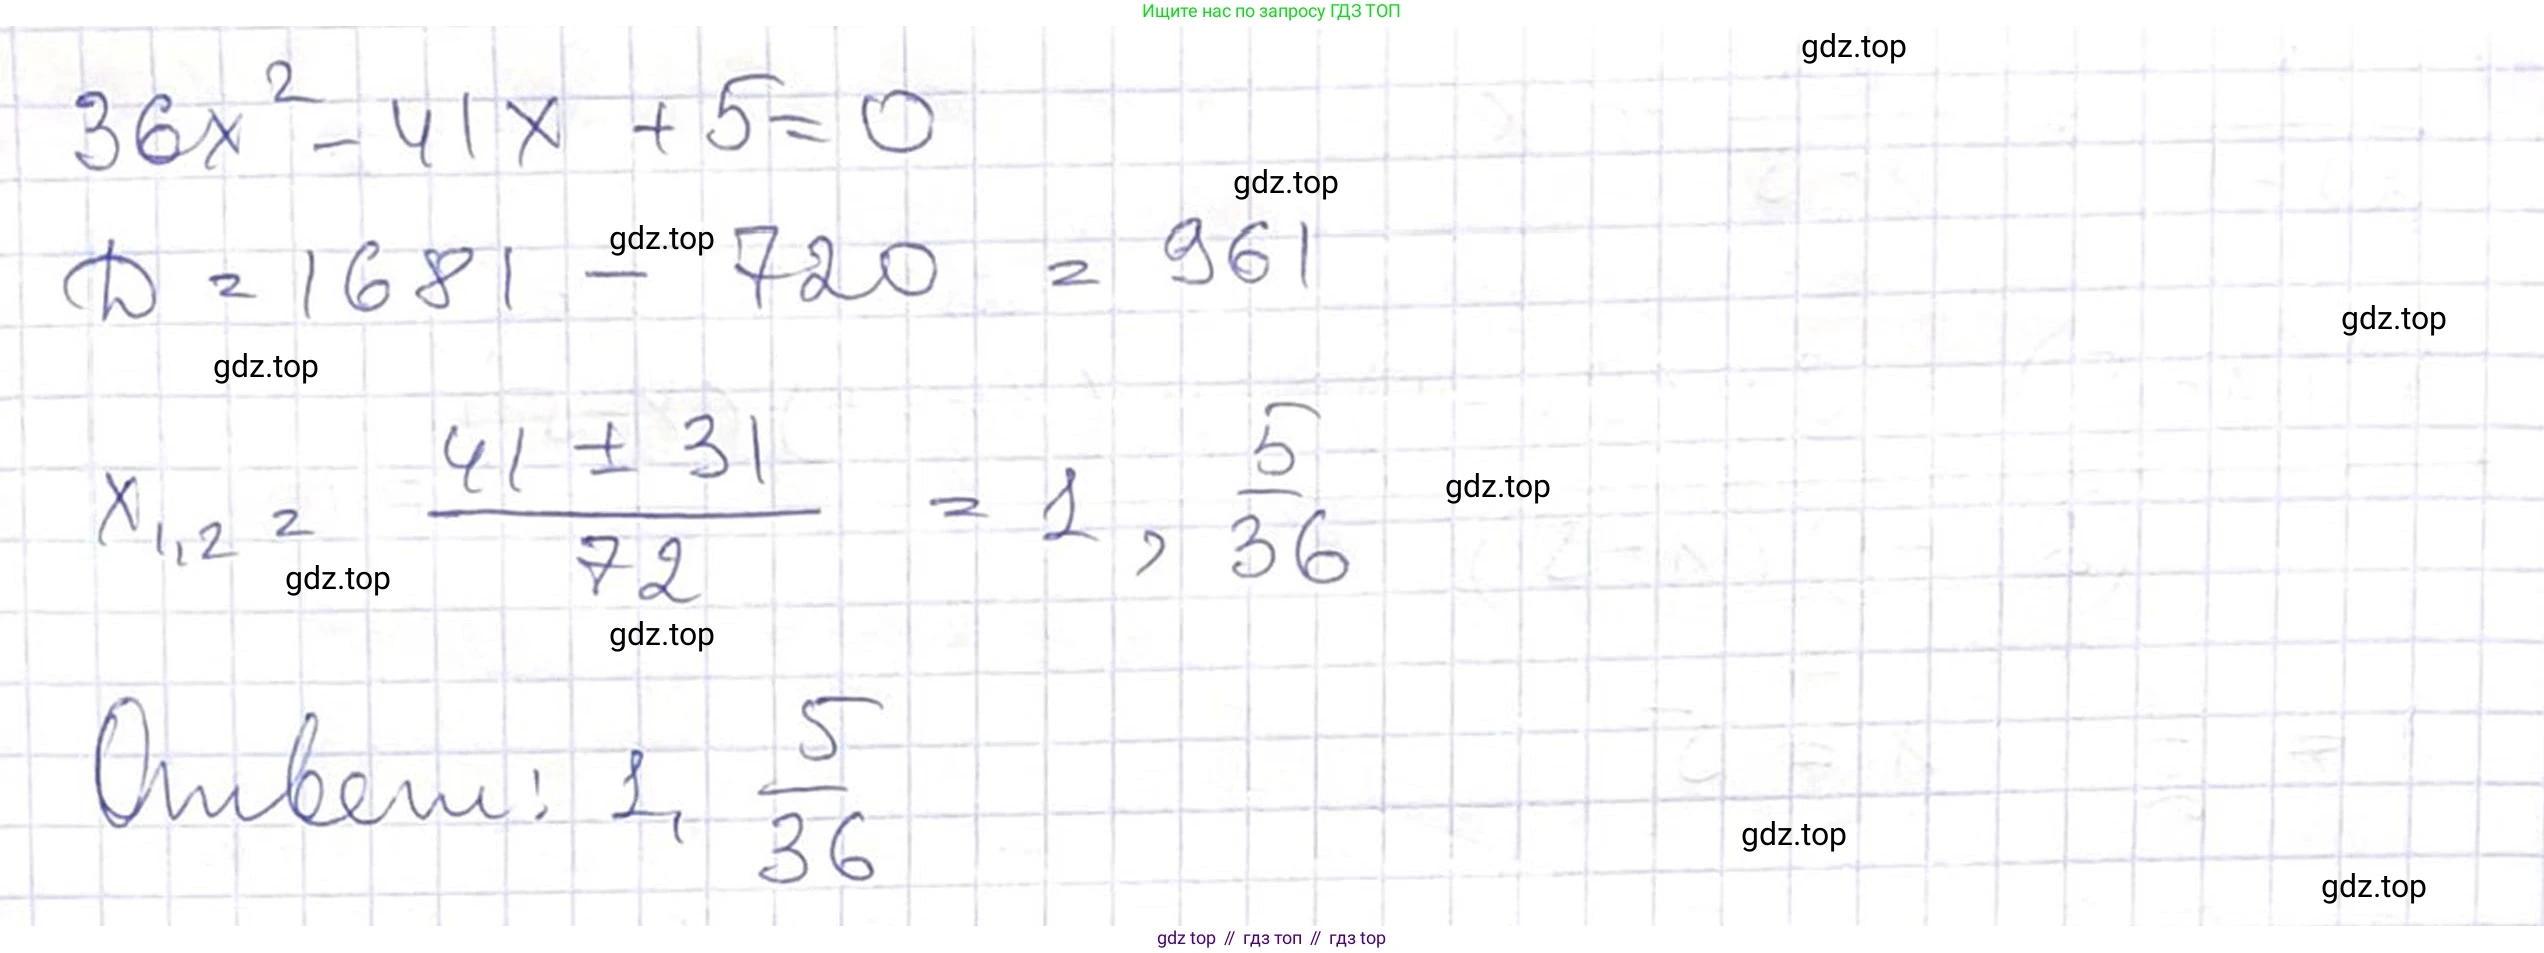 Ищите нас по запросу ГДЗ ТОП
gdz.top
36x² - 41x + 5 = 0
gdz.top
gdz.top
D = 1681 - 720 = 961
gdz.top
gdz.top
x₁,₂ = (41 ± 31)/72 = 1, 5/36
gdz.top
gdz.top
gdz.top
Ответ: 1, 5/36
gdz.top
gdz.top
gdz top // гдз топ // гдз top